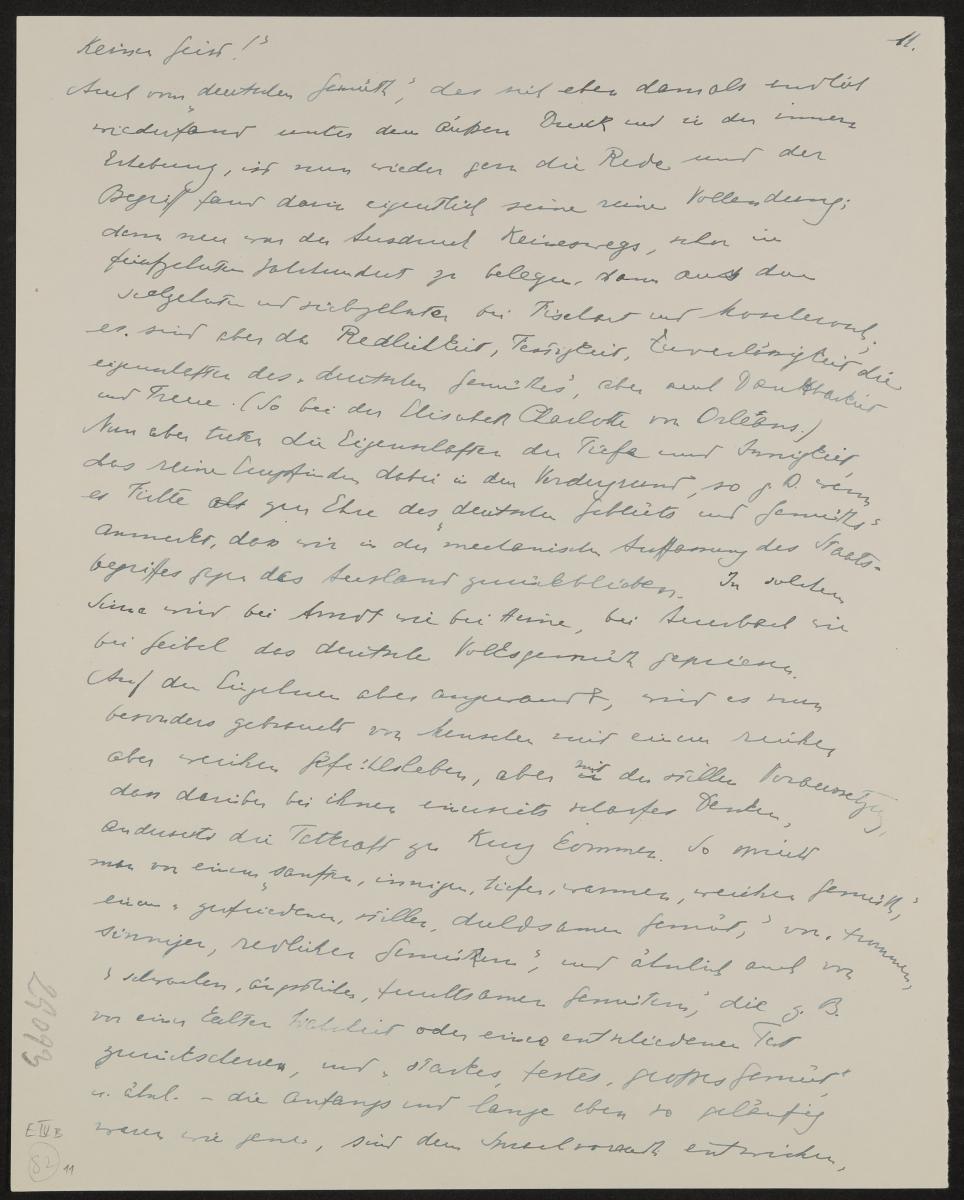 11.
keinen Geist!"
Auch vom „deutschen Gemüth", das sich eben damals endlich
wiederfand unter dem äußern Druck und in der innern
Erhebung, ist nun wieder gern die Rede und der
Begriff fand darin eigentlich seine reine Vollendung;
denn neu war der Ausdruck keineswegs, schon im
fünfzehnten Jahrhundert zu belegen, dann aus dem
sechzehnten und siebzehnten bei Fischart und Moscherosch;
es sind aber da Redlichkeit, Festigkeit, Zuverlässigkeit die
Eigenschaften des „deutschen Gemüthes", aber auch Dankbarkeit
und Treue. (So bei der Elisabeth Charlotte von Orléans.)
Nun aber treten die Eigenschaften der Tiefe und Innigkeit,
das reine Empfinden dabei in den Vordergrund, so z. B. wenn
es Fichte als zur Ehre des „deutschen Geblüts und Gemüths"
anmerkt, dass wir in der „mechanischen Auffassung des Staats-
begriffes gegen das Ausland zurückblieben. In solchem
Sinne wird bei Arndt wie bei Heine, bei Auerbach wie
bei Geibel das deutsche Volksgemüth gepriesen.
Auf den Einzelnen aber angewandt, wird es nun
besonders gebraucht von Menschen mit einem reichen
aber weichen Gefühlsleben, aber mit der stillen Voraussetzung,
dass darüber bei ihnen einerseits scharfes Denken,
anderseits die Tatkraft zu kurz kommen. So spricht
man von einem „sanften, innigen, tiefen, warmen, weichen Gemüth",
einem „zufriedenen, stillen, duldsamen Gemüt," von „frommen,
sinnigen, redlichen Gemüthern", und ähnlich auch von
„schwachen, ängstlichen, furchtsamen Gemütern," die z. B.
vor einer kalten Wahrheit oder einer entschiedenen Tat
zurückscheuen, und „starkes, festes, großes Gemüt"
u. ähnl. – die anfangs und lange eben so geläufig
waren wie jene, sind dem Sprachvorrath entwichen,
E IV B
82
11